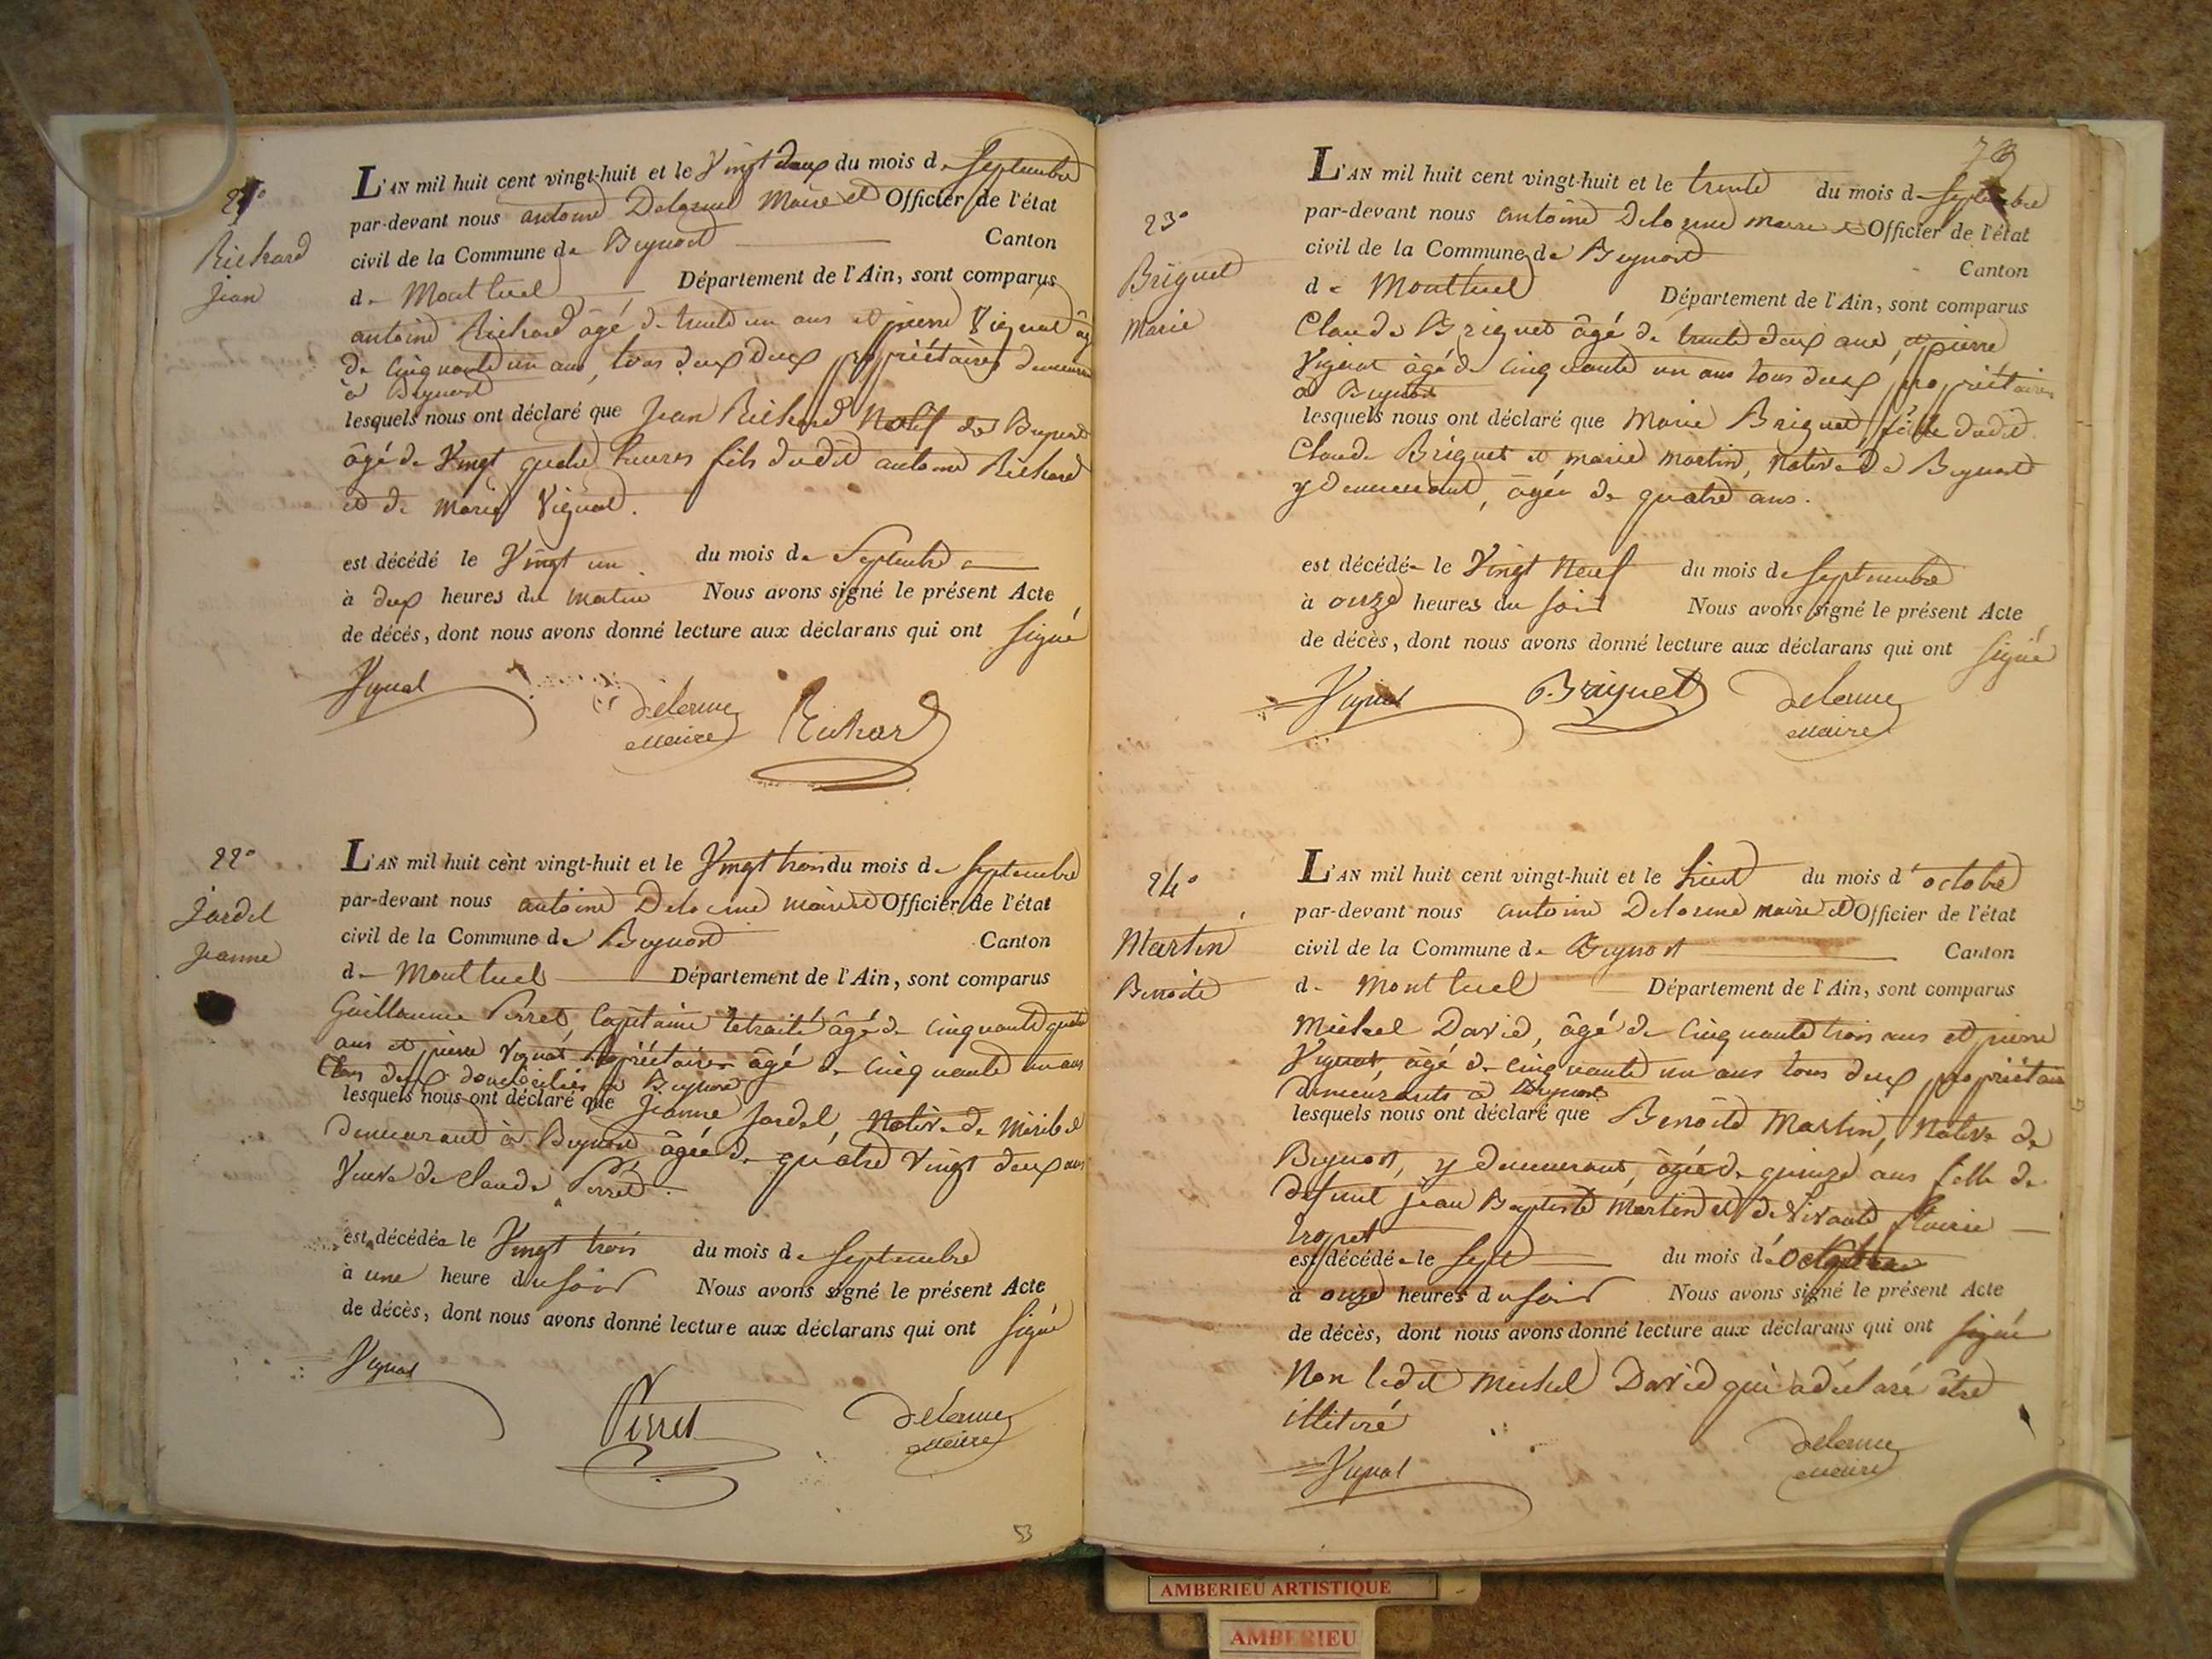 21°
Richard
Jean
L'AN mil huit cent vingt-huit et le Vingt deux du mois de Septembre
par-devant nous antoine Delorme Maire et Officier de l'état
civil de la Commune de Beynost Canton
de Montluel Département de l'Ain, sont comparus
antoine Richard âgé de trente un ans et pierre Vignat âgé
de cinquante un ans, tous deux propriétaires demeurant
à Beynost
lesquels nous ont déclaré que Jean Richard Natif de Beynost
âgé de Vingt quatre heures fils dudit antoine Richard
et de Marie Vignat.
est décédé le Vingt un du mois de Septembre
à deux heures du matin Nous avons signé le présent Acte
de décès, dont nous avons donné lecture aux déclarans qui ont signé
Vignat
Delorme
Maire
Richard
22°
Jardel
Jeanne
L'AN mil huit cent vingt-huit et le Vingt trois du mois de Septembre
par-devant nous antoine Delorme maire et Officier de l'état
civil de la Commune de Beynost Canton
de Montluel Département de l'Ain, sont comparus
Guillaume Perret, Capitaine retraité âgé de cinquante quatre
ans et pierre Vignat propriétaire âgé de cinquante un ans
tous deux domiciliés à Beynost
lesquels nous ont déclaré que Jeanne Jardel, Native de Miribel
demeurant à Beynost âgée de quatre Vingt deux ans
Veuve de Claude Perret.
est décédée le Vingt trois du mois de Septembre
à une heure du soir Nous avons signé le présent Acte
de décès, dont nous avons donné lecture aux déclarans qui ont signé
Vignat
Perret
Delorme
Maire
53
23°
Briguet
Marie
L'AN mil huit cent vingt-huit et le trente du mois de Septembre
par-devant nous antoine Delorme maire et Officier de l'état
civil de la Commune de Beynost
Canton
de Montluel Département de l'Ain, sont comparus
Claude Briguet âgé de trente deux ans, et pierre
Vignat âgé de cinquante un ans tous deux propriétaires
à Beynost
lesquels nous ont déclaré que Marie Briguet fille dudit
Claude Briguet et marie martin, Native de Beynost
y demeurant, âgée de quatre ans.
est décédée le Vingt Neuf du mois de Septembre
à onze heures du soir Nous avons signé le présent Acte
de décès, dont nous avons donné lecture aux déclarans qui ont signé
Vignat
Briguet
Delorme
Maire
24°
Martin
Benoite
L'AN mil huit cent vingt-huit et le huit du mois d'octobre
par-devant nous antoine Delorme maire et Officier de l'état
civil de la Commune de Beynost Canton
de Montluel Département de l'Ain, sont comparus
Michel David, âgé de cinquante trois ans et pierre
Vignat, âgé de cinquante un ans tous deux propriétaires
demeurants à Beynost
lesquels nous ont déclaré que Benoite Martin, Native de
Beynost, y demeurant, âgée de quinze ans fille de
defunt jean Baptiste Martin et de Vivante
est décédée le sept du mois d'octobre
à onze heures du soir Nous avons signé le présent Acte
de décès, dont nous avons donné lecture aux déclarans qui ont signé
Non ledit Michel David qui a déclaré être
illitéré
Vignat
Delorme
Maire
AMBERIEU ARTISTIQUE
AMBERIEU